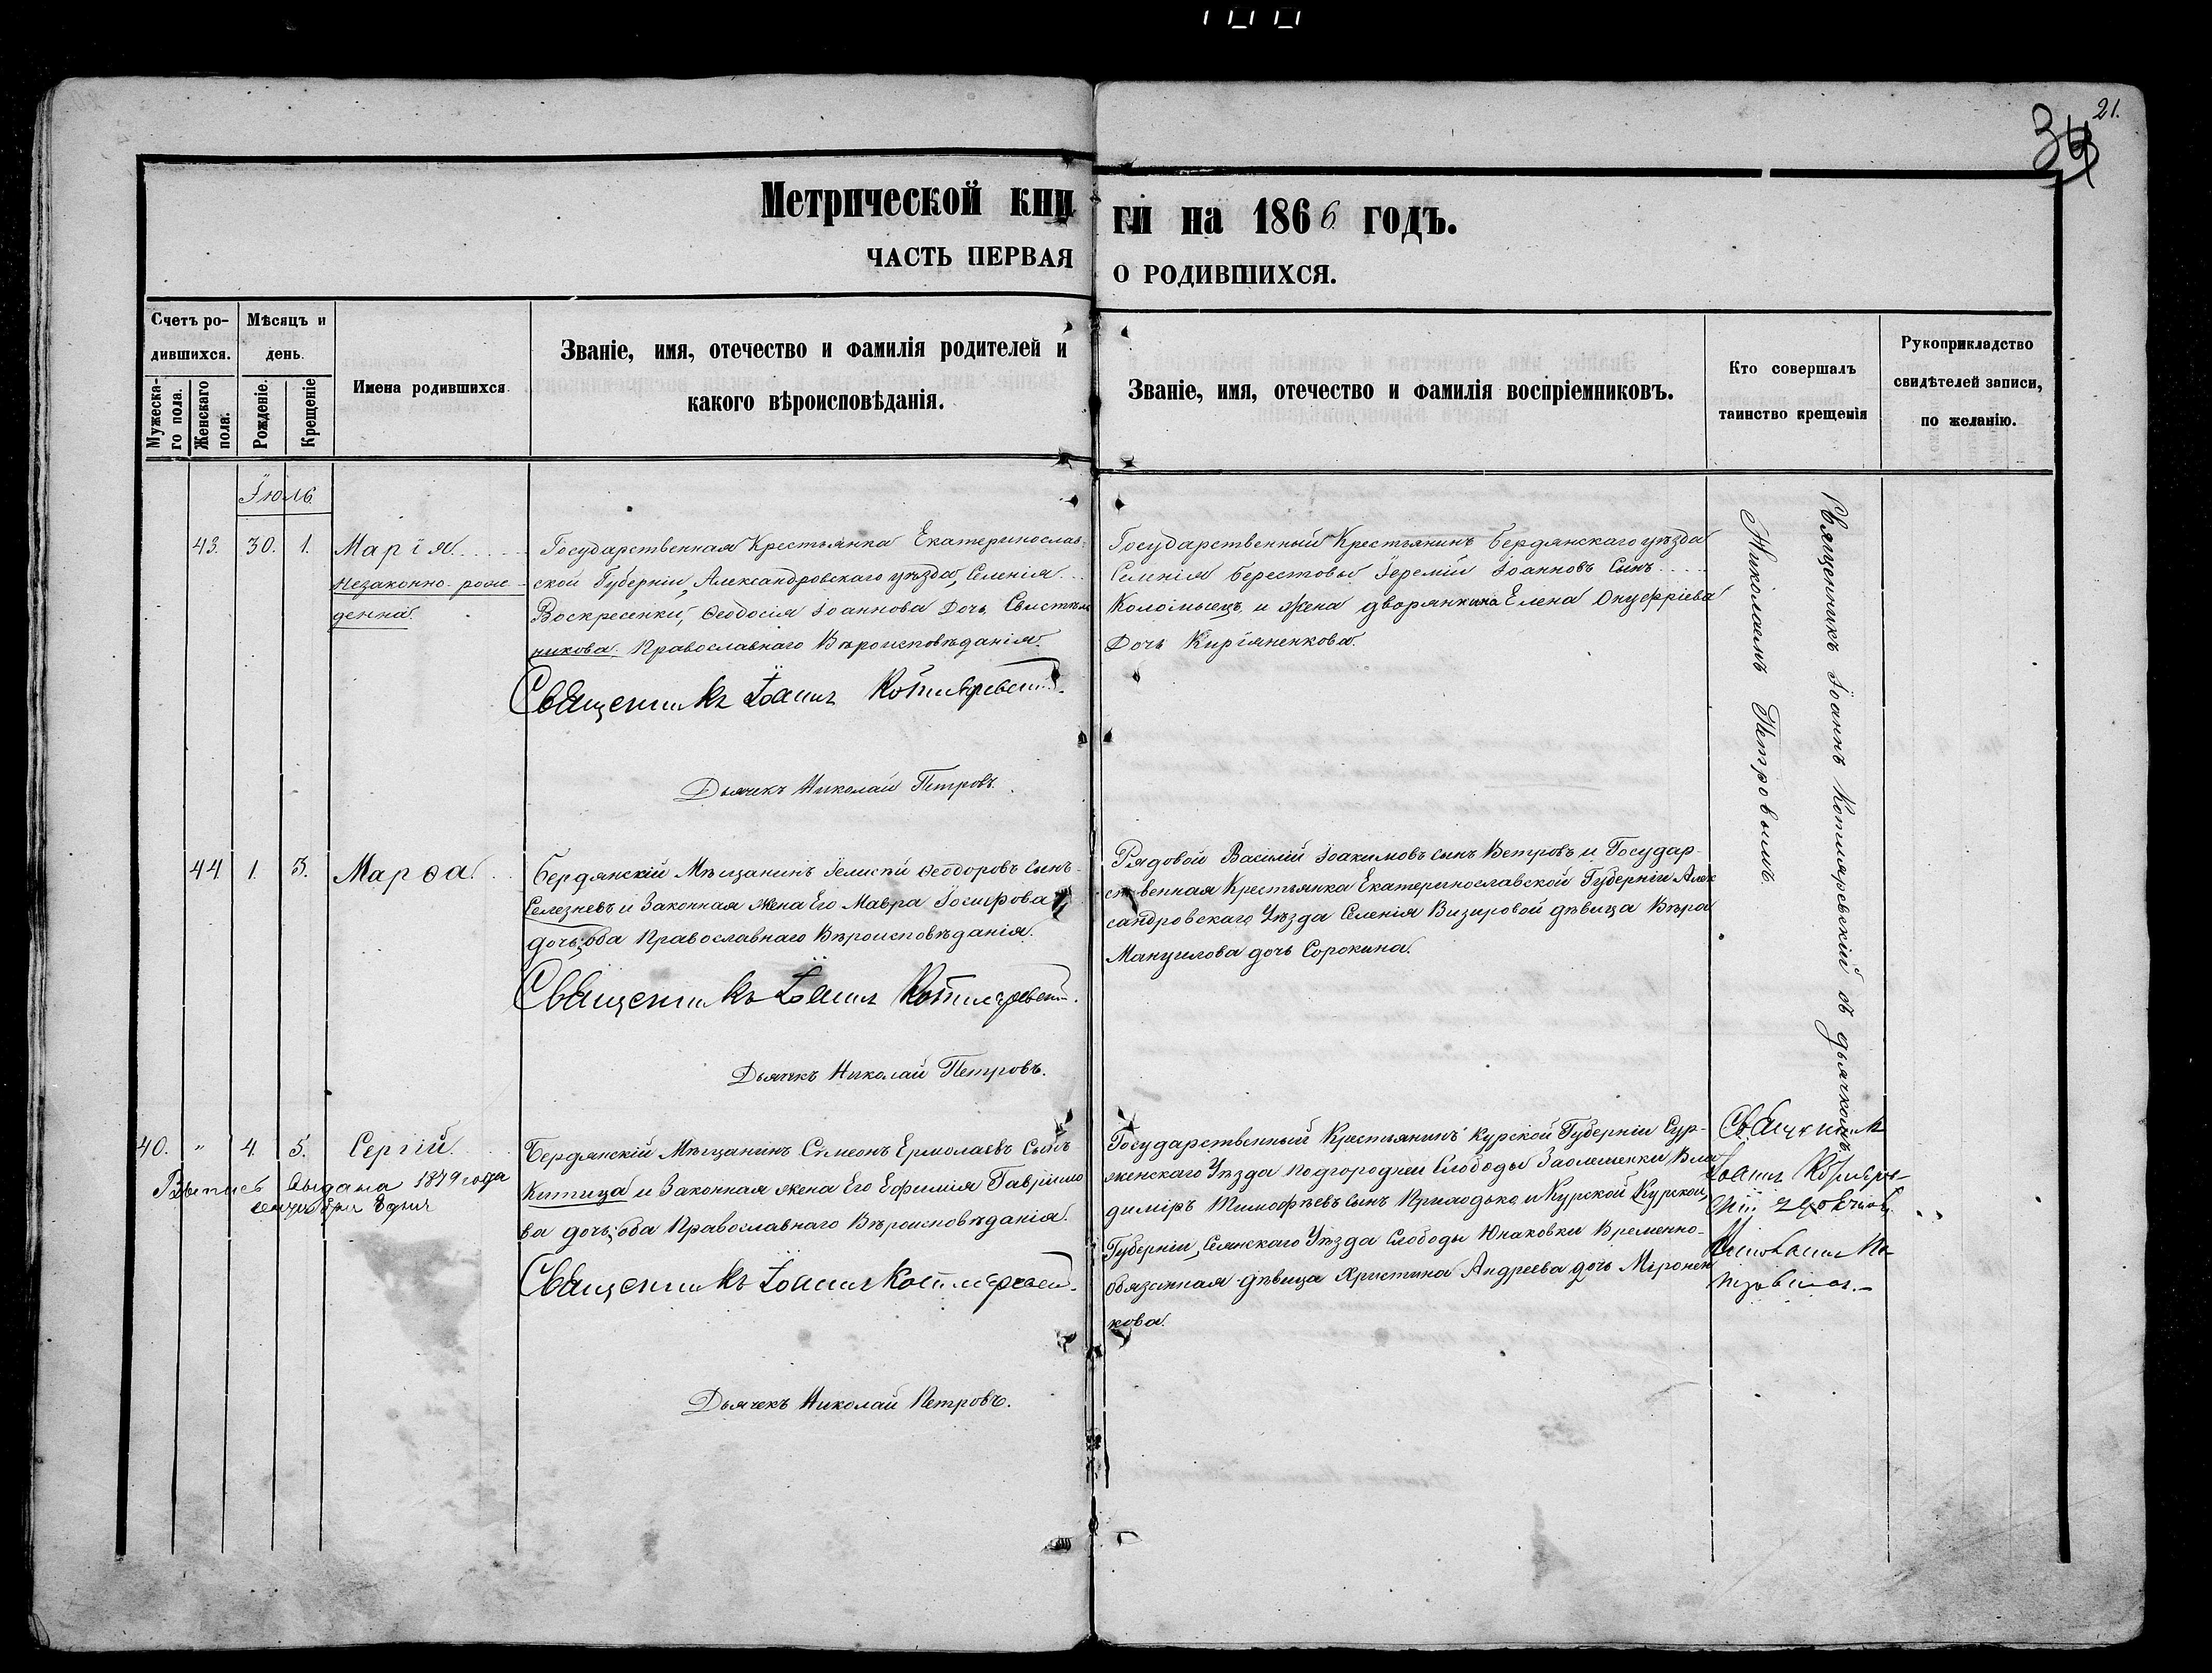 21.
34
Метрической кни
ги на 1866 годъ.
ЧАСТЬ ПЕРВАЯ
О РОДИВШИХСЯ.
Счетъ ро-
дившихся.
Мужеска-
го пола.
Женскаго
пола.
Мѣсяцъ и
день.
Рожденіе.
Крещеніе
Имена родившихся
Званіе, имя, отечество и фамилія родителей и
какого вѣроисповѣданія.
Званіе, имя, отечество и фамилія воспріемниковъ.
Кто совершалъ
таинство крещенія
Рукоприкладство
свидѣтелей записи,
по желанію.
Іюль
43. 30. 1. Марія
незаконно-рож-
денна.
Государственная Крестьянка Екатеринослав-
ской Губерніи, Александровскаго уѣзда, Селенія
Воскресенки, Ѳеодосія Іоаннова Дочь Свистѣль
никова. Православнаго Вѣроисповѣданія.
Священникъ Іоаннъ Котляревскій.
Дьячекъ Николай Петровъ.
Государственный Крестьянинъ Бердянскаго уѣзда
Селенія Берестовы Іеремій Іоанновъ Сынъ
Коломыецъ, и Жена дворянкина Елена Онуфріева
Дочь Киріяненкова.
Священникъ Іоаннъ Котляревскій съ дьячкомъ
Николаемъ Петровымъ.
44 1. 3. Марѳа
Бердянскій Мѣщанинъ Ѳеодоровъ Сынъ
Селезневъ и Законная жена Его Мавра Іосифова
дочь; оба Православнаго Вѣроисповѣданія.
Священникъ Іоаннъ Котляревскій.
Дьячекъ Николай Петровъ.
Рядовой Василій Іоакимовъ сынъ Ветровъ и Государ-
ственная Крестьянка Екатеринославской Губерніи Алек
сандровскаго Уѣзда Селенія Визировой дѣвица Вѣра
Мануилова дочь Сорокина.
40. " 4. 5. Сергій
Выпись выдана 1879 года
сентября 8 дня
Бердянскій Мѣщанинъ Сѵмеонъ Ермолаевъ Сынъ
Китица и Законная жена Его Ефимія Гавріило
ва дочь; оба Православнаго Вѣроисповѣданія.
Священникъ Іоаннъ Котляревскій.
Дьячекъ Николай Петровъ.
Государственный Крестьянинъ Курской Губерніи Сур-
женскаго Уѣзда Подгородней Слободы Заолешенки Вла
диміръ Тимофѣевъ сынъ Приходько, и Курской Курской
Губерніи, Семскаго Уѣзда Слободы Юнаковки Временно-
обязанная дѣвица Христина Андреева дочь Миронен
кова.
Священникъ
Іоаннъ Котлярев-
скій дьячкомъ
Николаемъ Пе-
тровымъ.